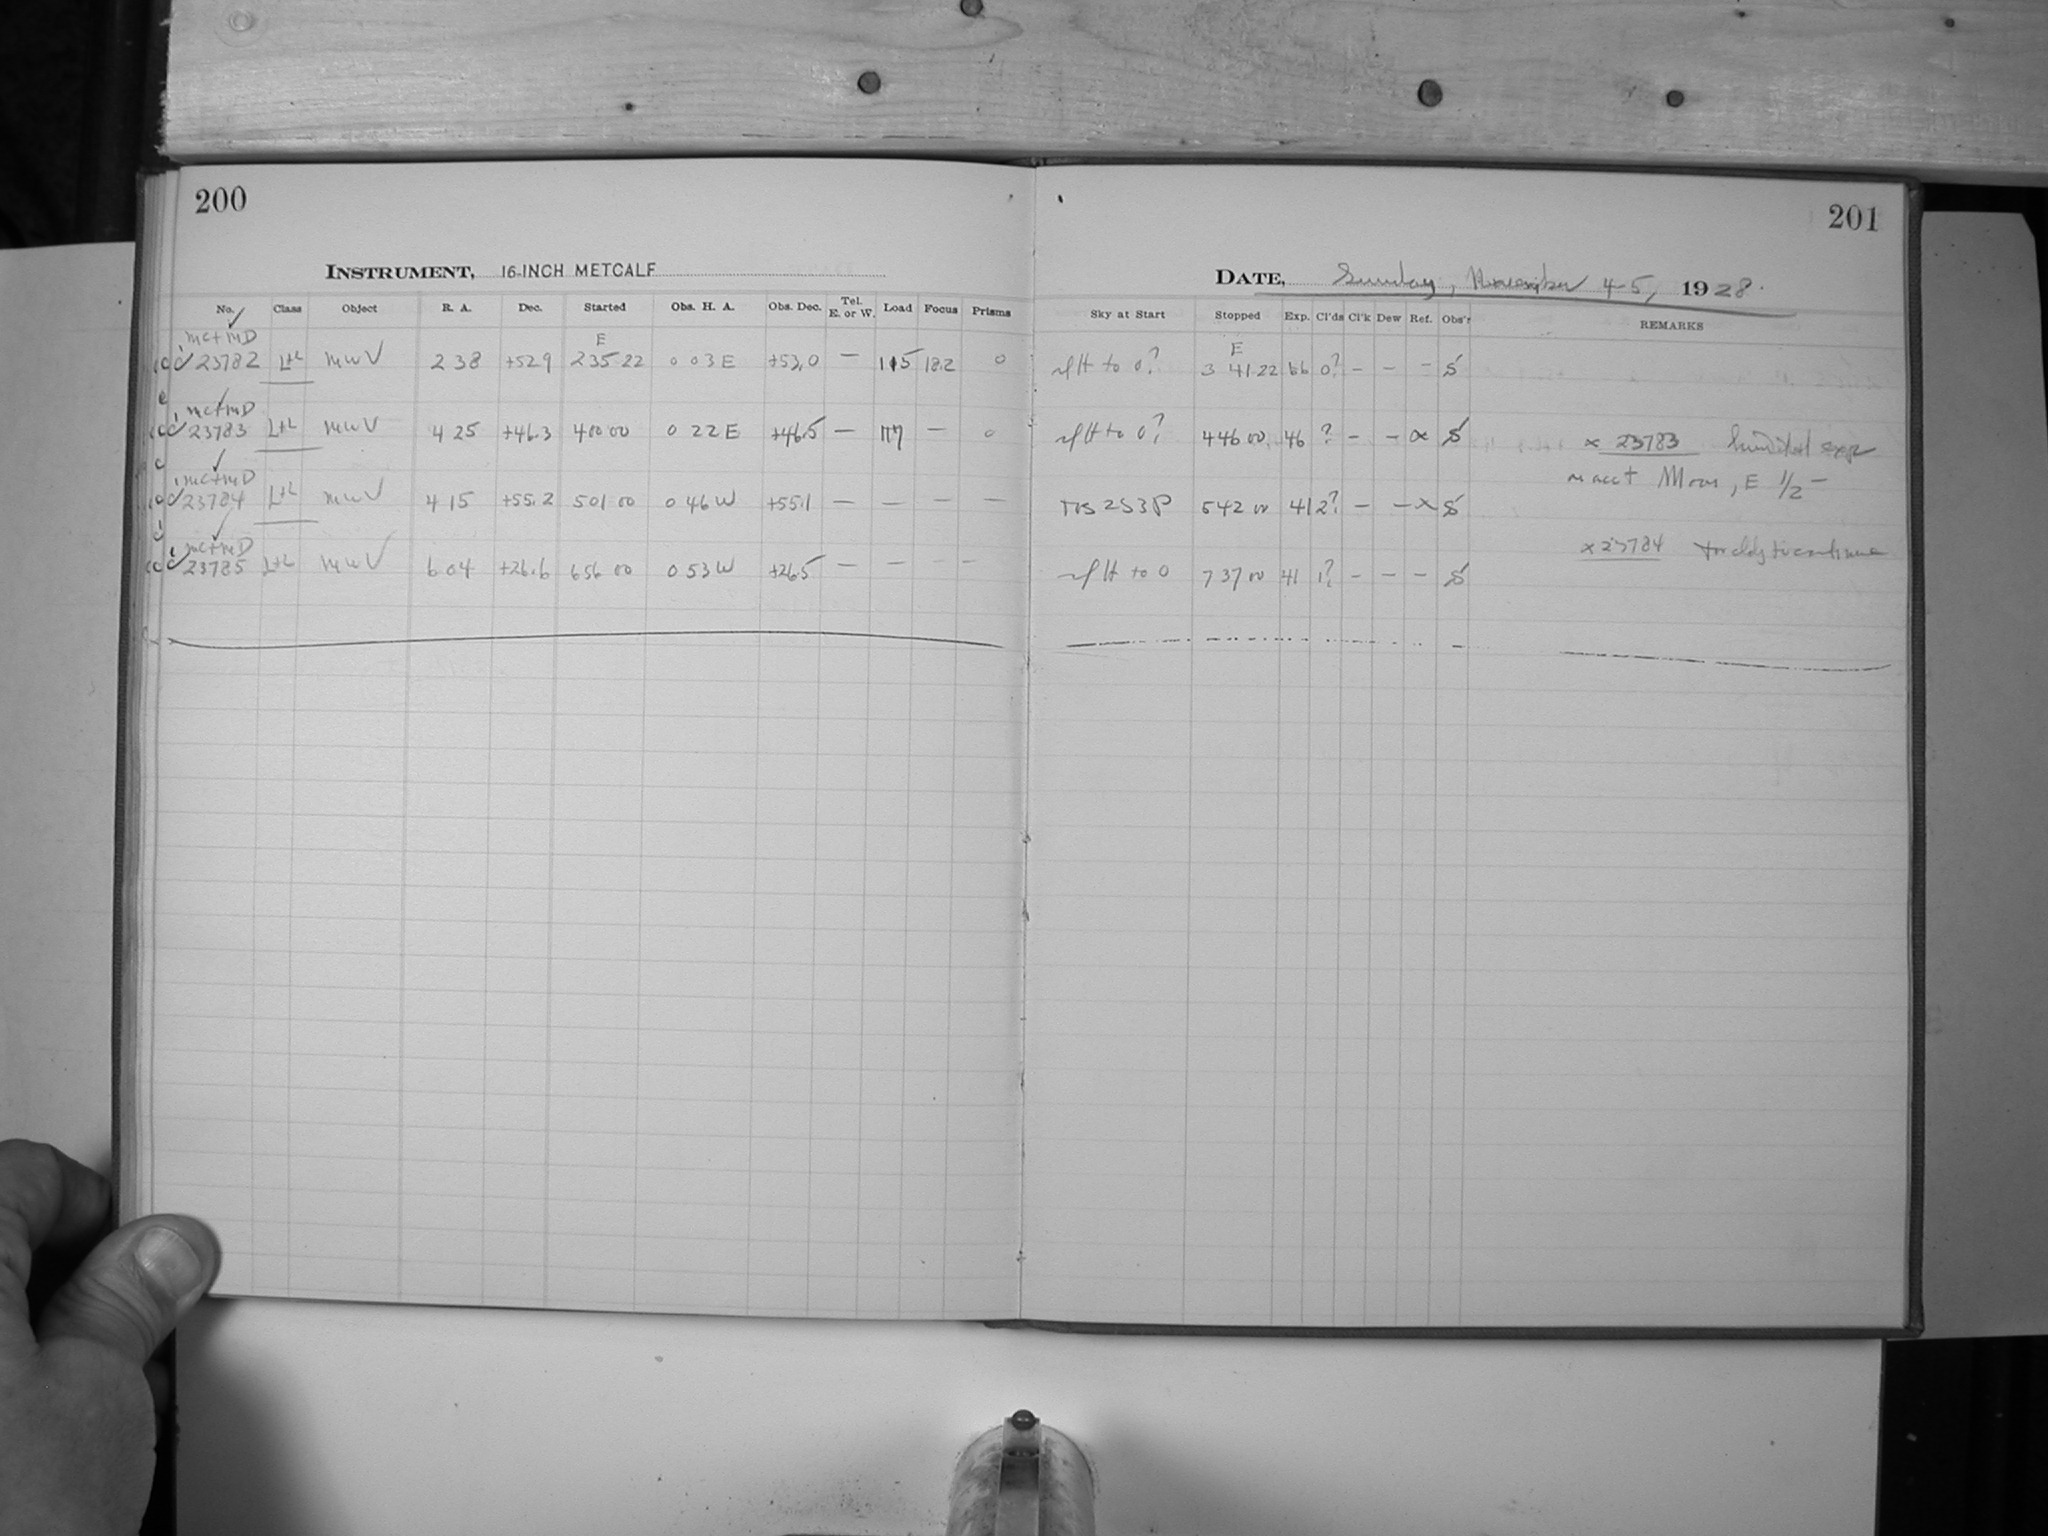 200
INSTRUMENT, 16-INCH METCALF
No. Class Object R. A. Dec. Started Obs. H. A. Obs. Dec. Tel. E. or W. Load Focus Prisms
mc+mD E
23782 L+L mwV 2 38 +52.9 235 22 0 03 E +53.0 — 115 18.2 0
mc+mD
23783 L+L mwV 4 25 +46.3 400 00 0 22 E +46.5 — 117 — 0
mc+mD
23784 L+L mwV 4 15 +55.2 501 00 0 46 W +55.1 — — — —
mc+mD
23785 L+L mwV 6 04 +26.6 656 00 0 53 W +26.5 — — — —
201
DATE, Sunday, November 4-5, 1928.
Sky at Start Stopped Exp. Cl'ds Cl'k Dew Ref. Obs'r REMARKS
E
to 0? 3 41 22 66 0? – – – S
to 0? 446 00 46 ? – – x S
2S3P 542 00 41 2? – – x S
to 0 737 00 41 1? – – – S
x 23783 exp
Moon, E 1/2 –
x 23784 to continue